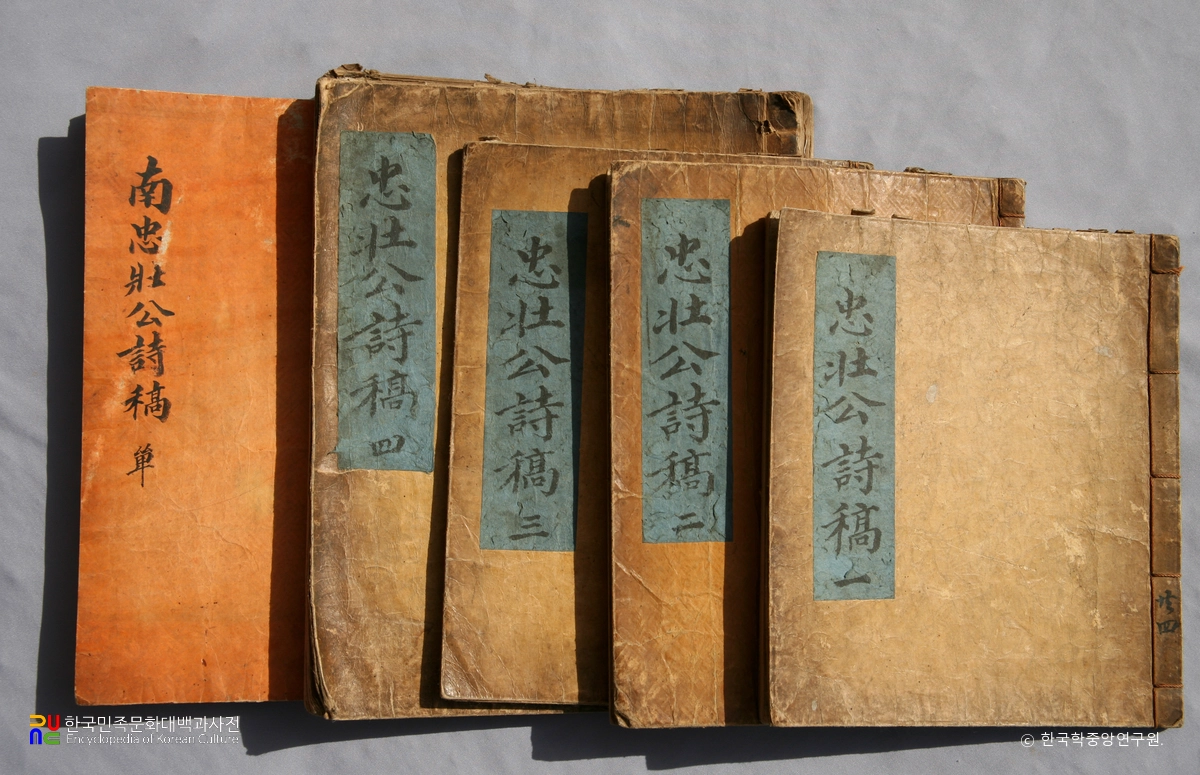 南忠壯公詩稿 單
忠壯公詩稿 四
忠壯公詩稿 三
忠壯公詩稿 二
忠壯公詩稿 一
共四
한국민족문화대백과사전
Encyclopedia of Korean Culture
© 한국학중앙연구원.